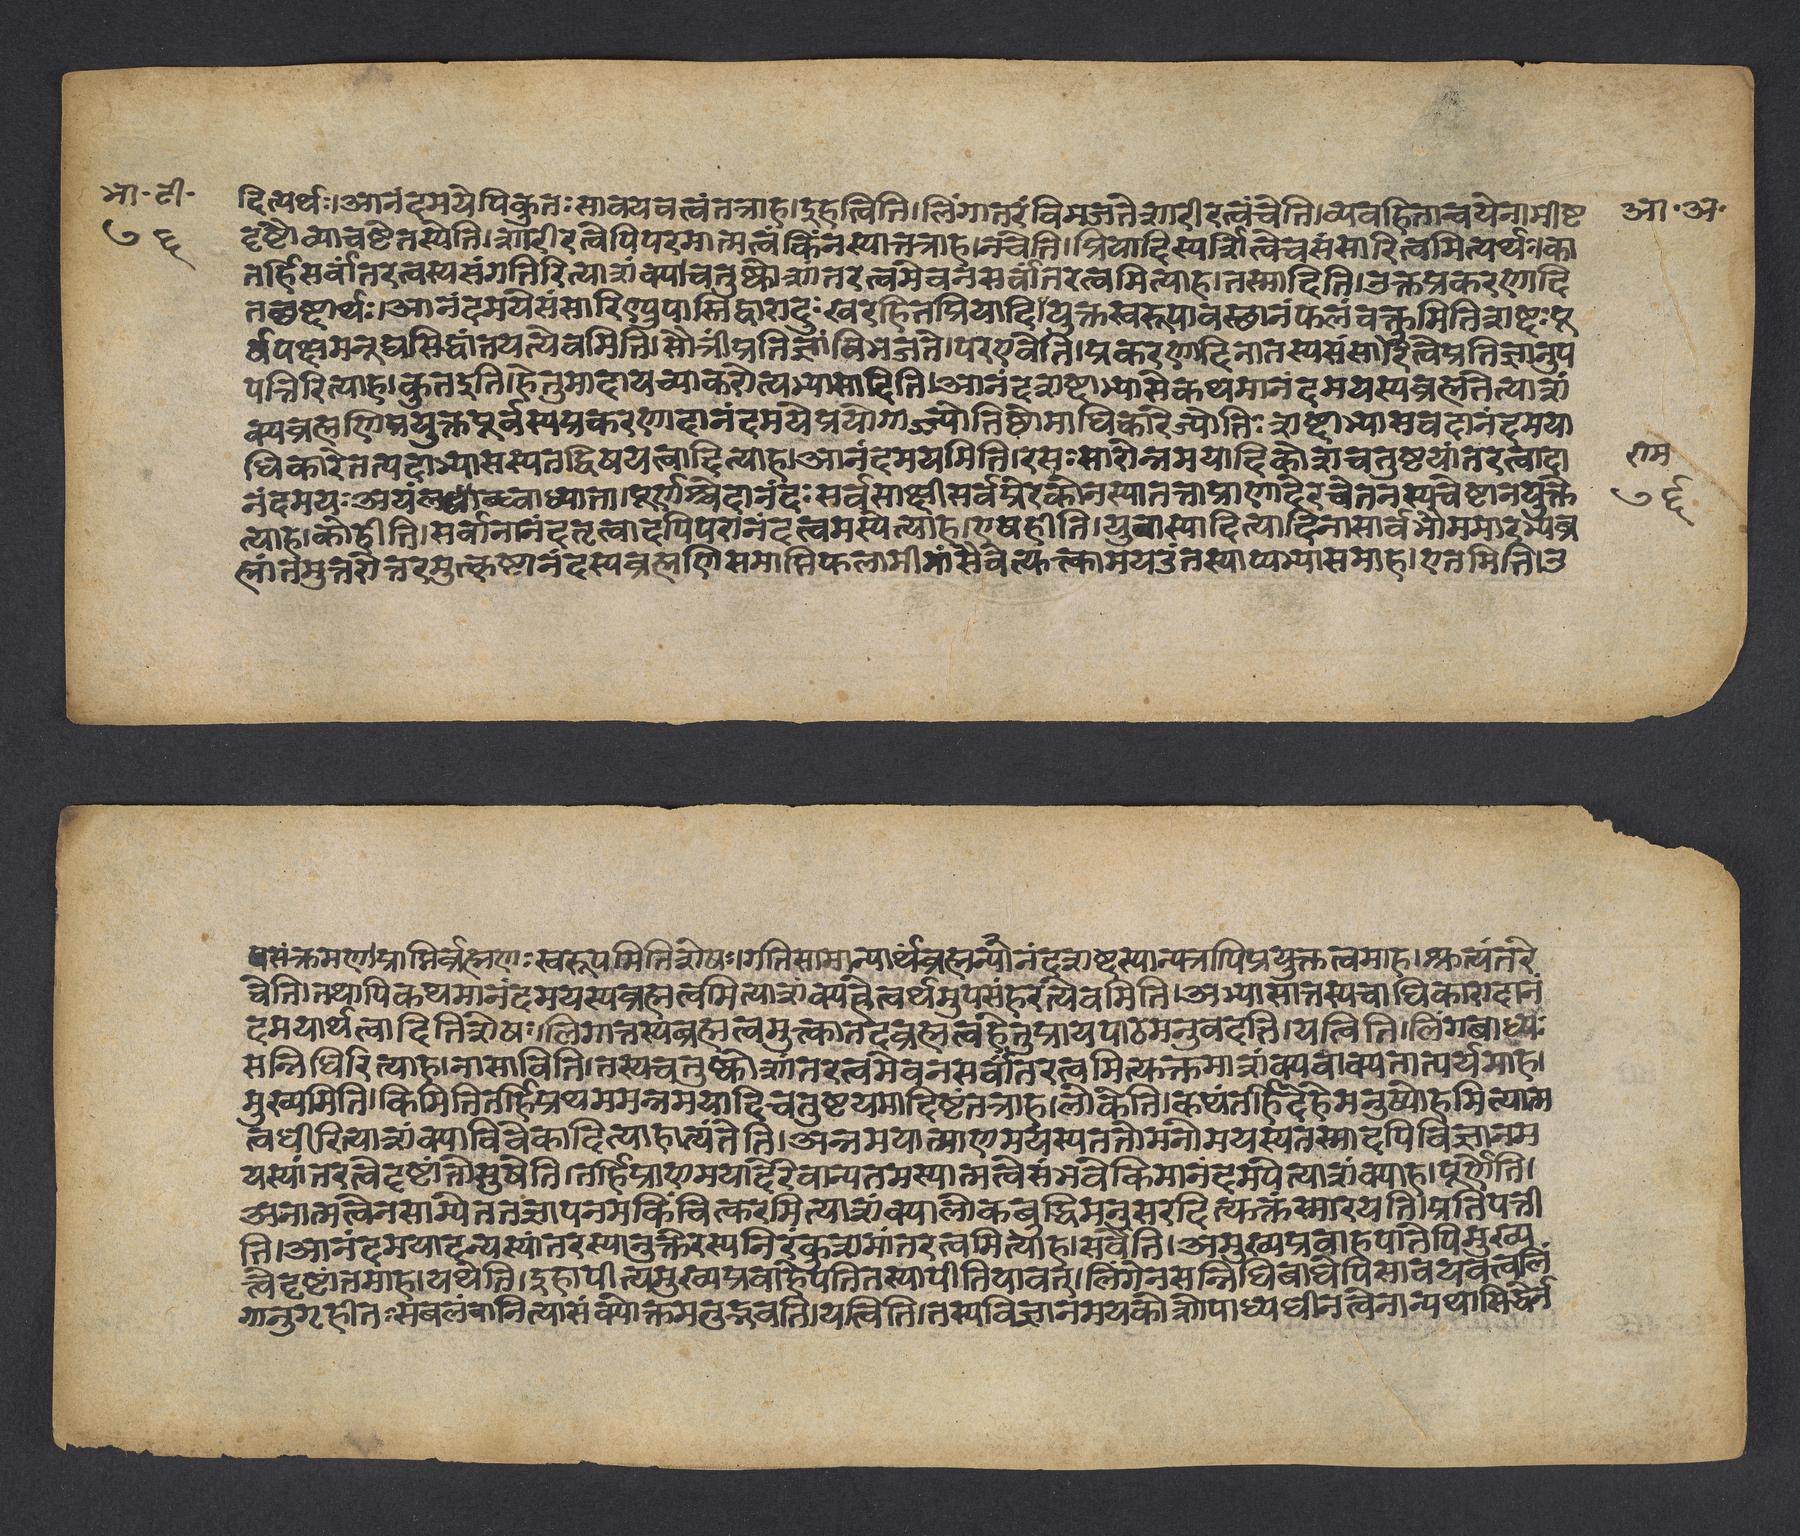 भा॰टी॰
७६
आ॰अ॰
दित्यर्थः।आनंदमयेपिकुतःसावयवत्वंतत्राह।इहत्विति।लिंगांतरंविभजतेशारीरत्वंचेति।व्यवहितान्वयेनाभीष्ट
दृष्टौव्याचष्टेतस्येति।शारीरत्वेपिपरमात्मत्वंकिंनस्यात्तत्राह।नचेति।प्रियादिस्पर्शित्वेचसंसारित्वमित्यर्थः।का
तर्हिसर्वांतरत्वस्यसंगतिरित्याशंक्याचतुष्कोशांतरत्वमेवनसर्वांतरत्वमित्याह।तस्मादिति।उक्तप्रकरणादि
तच्छब्दार्थः।आनंदमयेसंसारिण्युपास्तिद्वारादुःखरहितप्रियादियुक्तस्वरूपावस्थानंफलंवक्तुमितिशब्दःपू
र्वपक्षमनूद्यसिद्धांतयत्येवमिति।सौत्रींप्रतिज्ञांविभजते।परएवेति।प्रकरणादिनातस्यसंसारित्वेप्रतिज्ञानुप
पत्तिरित्याह।कुतइति।हेतुमादायव्याकरोत्यभ्यासादिति।आनंदशब्दाभ्यासेकथमानंदमयस्यब्रह्मतेत्याशं
क्यब्रह्मणिप्रयुक्तपूर्वस्यप्रकरणादानंदमयेप्रयोगाज्ज्योतिष्टोमाधिकारेज्योतिःशब्दाभ्यासवदानंदमया
धिकारेतत्पदाभ्यासस्यतद्विषयत्वादित्याह।आनंदमयमिति।रसःसारोन्नमयादिकोशचतुष्टयांतरत्वादा
नंदमयःअयंलब्धाध्याता।पूर्णश्चेदानंदःसर्वसाक्षीसर्वप्रेरकोनस्यात्तत्राप्राणादेरचेतनस्यचेष्टानयुक्ते
त्याह।कोहीति।सर्वानानंदतृत्वादपिपरानंदत्वमस्येत्याह।एषहीति।युवास्यादित्यादिनासार्वभौममारभ्यब्र
ह्मांतमुत्तरोत्तरमुत्कृष्टानंदस्यब्रह्मणिसमाप्तिफलामीमांसैवेत्यक्त्कामयउंतस्याप्यभ्यासमाह।एतमिति।उ
राम
७६
पसंक्रमणप्राप्तिर्ब्रह्मणःस्वरूपमितिशेषः।गतिसामान्यार्थंब्रह्मण्यानंदशब्दस्यान्यत्रापिप्रयुक्तत्वमाह।श्रुत्यंतरे
चेति।तथापिकथमानंदमयस्यब्रह्मत्वमित्याशंक्यहेत्वर्थमुपसंहरत्येवमिति।अभ्यासात्तस्यचाधिकारादानं
दमयार्थत्वादितिशेषः।लिंगात्तस्यब्रह्मत्वमुक्त्कातदब्रह्मत्वहेतुप्रायपाठमनुवदति।यत्विति।लिंगबाध्यः
सन्निधिरित्याह।नासाविति।तस्यचतुष्कोशांतरत्वमेवनसर्वांतरत्वमित्युक्तमाशंक्यवाक्यतात्पर्यमाह।
मुख्यमिति।किमितितर्हिप्रथममन्नमयादिचतुष्टयमादिष्टंतत्राह।लोकेति।कथंतर्हिदेहेमनुष्योहमित्यात्म
त्वधीरित्याशंक्याविवेकादित्याहात्यंतेति।अन्नमयात्प्राणमयस्यततोमनोमयस्यतस्मादपिविज्ञानम
यस्यांतरत्वेदृष्टांतोमुषेति।तर्हिप्राणमयादेरेवान्यतमस्यात्मत्वेसंभवेकिमानंदमयेत्याशंक्याह।पूर्वेणेति।
अनात्मत्वेनसाम्येततज्ञापनमकिंचित्करमित्याशंक्यालोकबुद्धिमनुसरदित्युक्तंस्मारयति।प्रतिपत्ती
ति।आनंदमयादन्यस्यांतरस्यानुक्तेरस्यनिरंकुशमांतरत्वमित्याह।सर्वेति।अमुख्यप्रवाहपातेपिमुख्य
त्वेदृष्टांतमाह।यथेति।इहापीत्यमुख्यप्रवाहेपतितस्यापीतियावत्।लिंगेनसन्निधिबाधेपिसावयवत्वलिं
गानुगृहीतःसबलवानित्याशंक्योक्तमनुद्रवति।यत्विति।तस्यविज्ञानमयकोशोपाध्यधीनत्वेनान्यथासिद्धेर्न